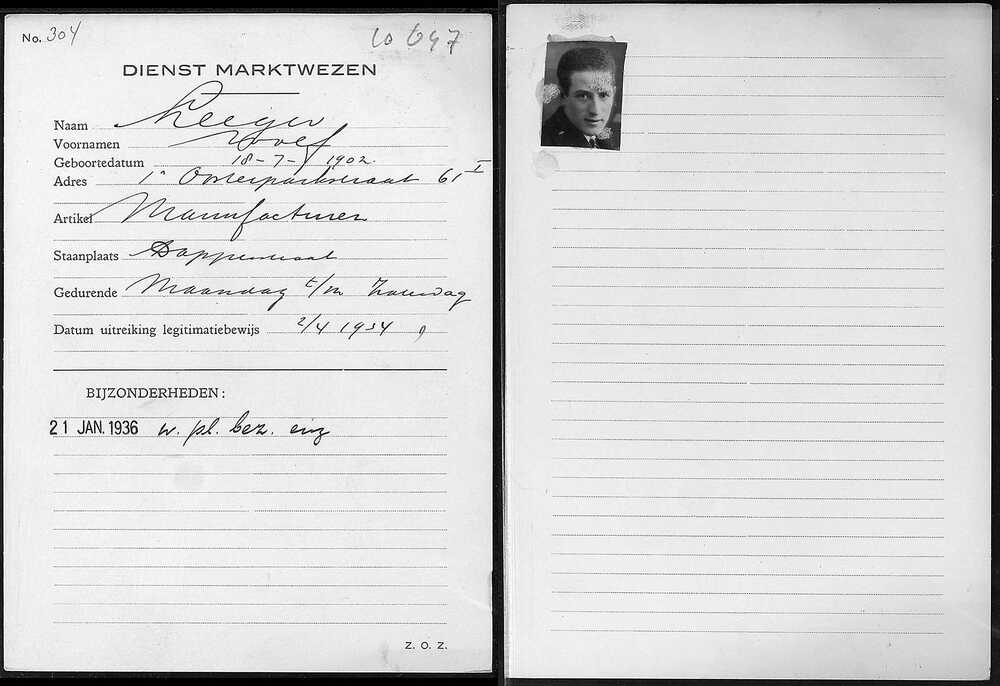 No. 304
10 647
DIENST MARKTWEZEN
Naam Leeger
Voornamen Wolf
Geboortedatum 18-7-1902.
Adres 1e Oosterparkstraat 61 I
Artikel Manufacturen
Staanplaats Dapperstraat
Gedurende Maandag t/m Zaterdag
Datum uitreiking legitimatiebewijs 2/4 1934
BIJZONDERHEDEN:
21 JAN. 1936 w. pl. bez. enz
Z. O. Z.